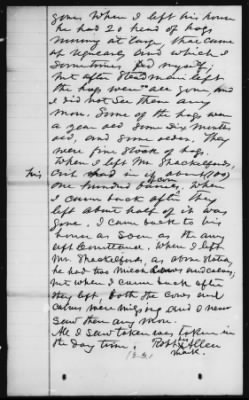 gone. When I left his house
he had 20 head of hogs
running at large, that came
up regularly and which I
sometimes fed myself;
but after Steadman left
the hogs were all gone and
I did not see them any
more. Some of the hogs was
a year old some six months
old, and some older. They
were fine stock of hogs.
When I left Mr. Shackelfords,
his crib had in it about (100)
one hundred barrels corn. When
I came back after they
left about half of it was
gone. I came back to his
house as soon as the army
left Courtland. When I left
Mr. Shackelfords, as above stated,
he had two milch cows and calves;
but when I came back after
they left, both the cows and
calves were missing and I never
saw them any more.
All I saw taken was taken in
the day time. Robt Allen
his
mark